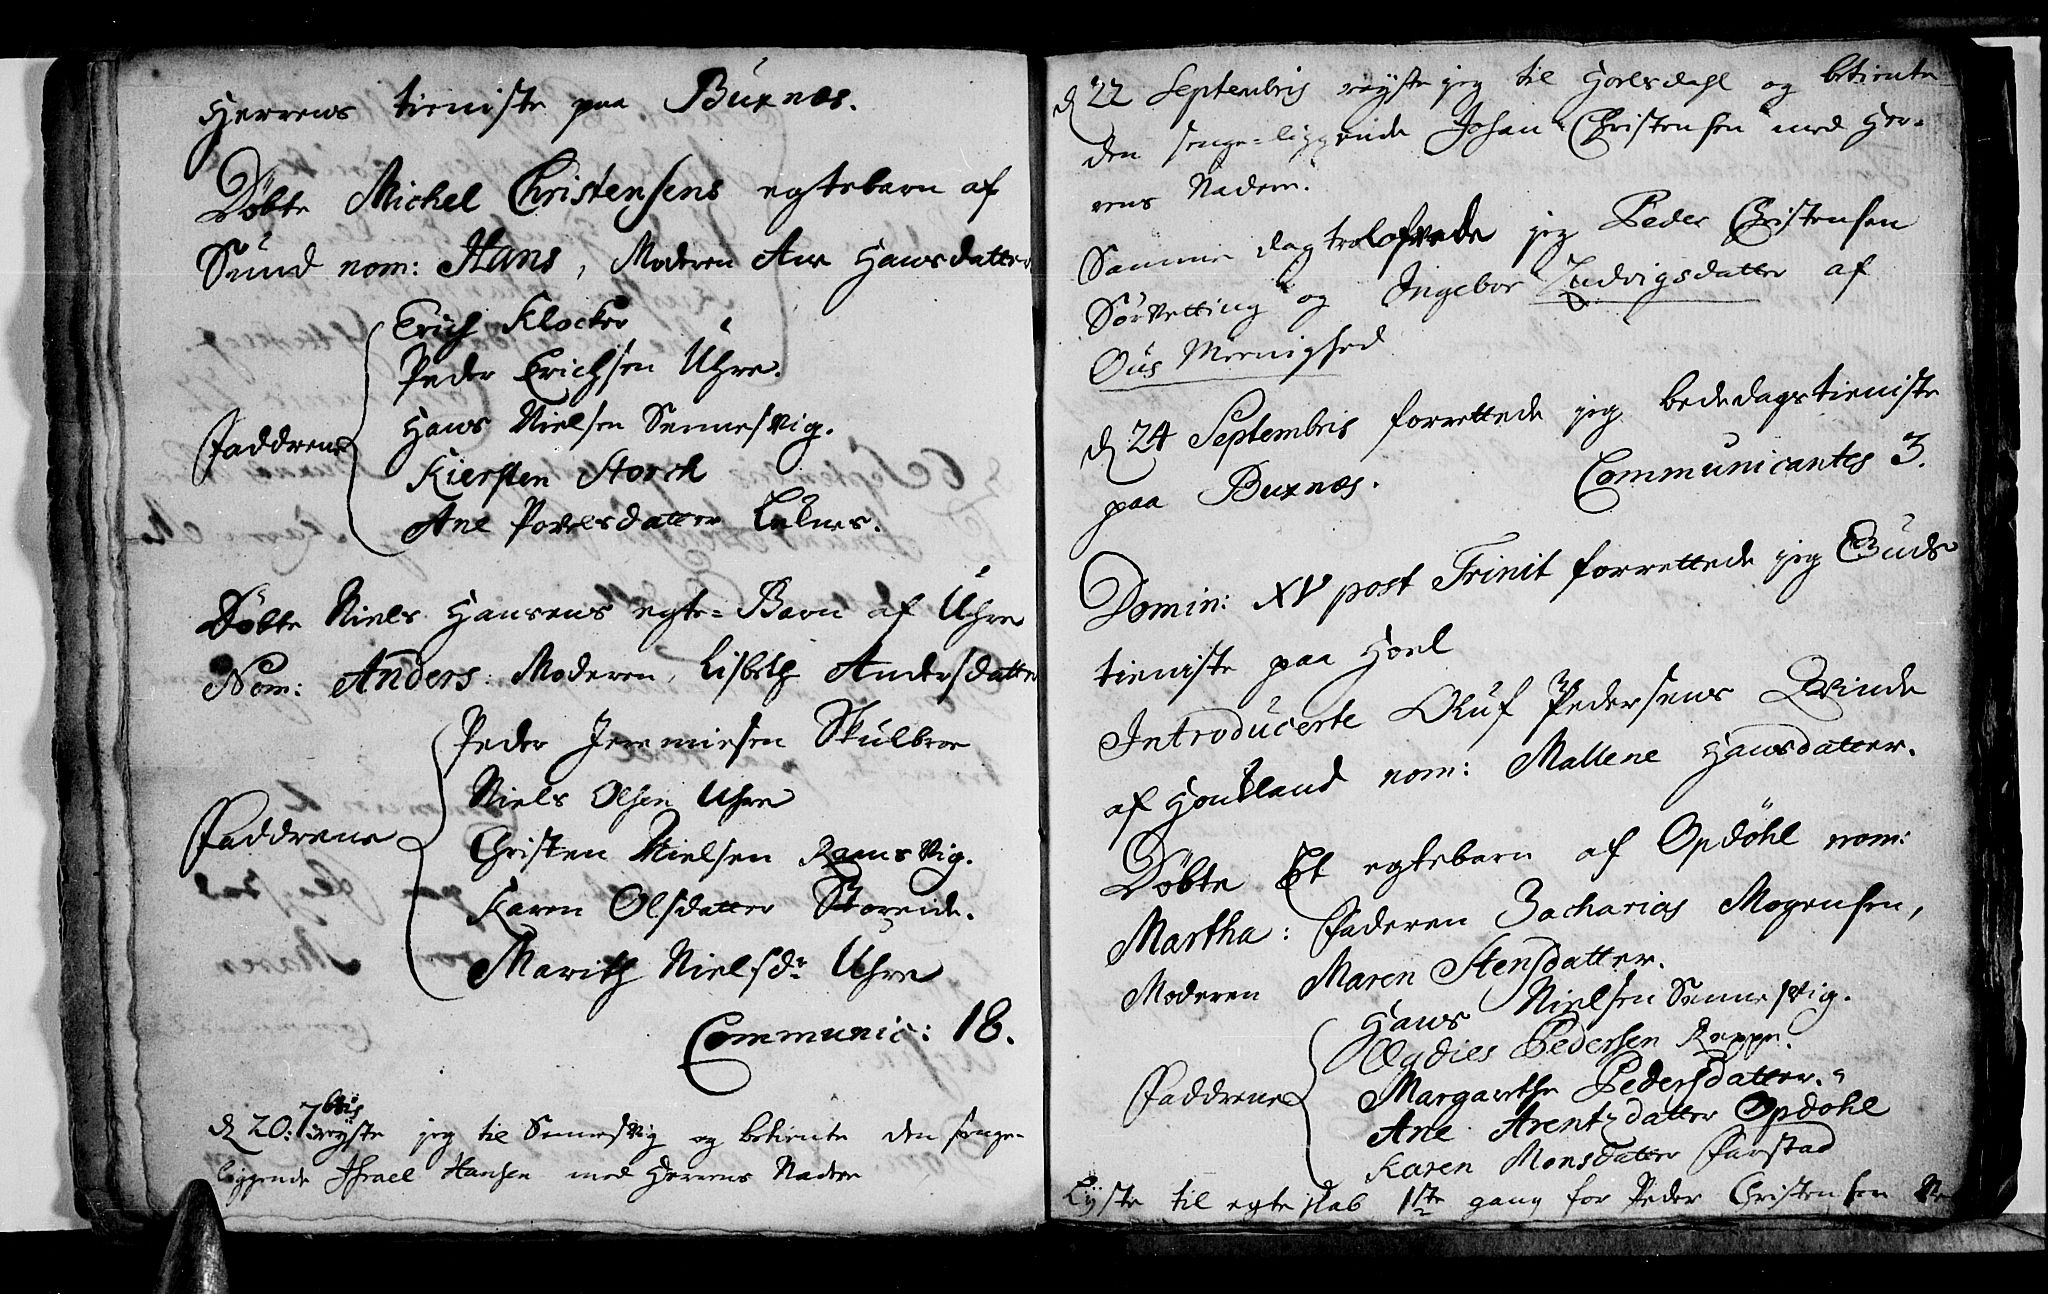 Herrens tieniste paa Buxnæs.
Döbte Michel Christensens egtebarn af
Sund nom: Hans, Moderen Ane Hansdatter
Erich Klocker
Peder Erichsen Uhre.
Hans Nielsen Sennesvig.
Faddrene
Kiersten Storck
Ane Povelsdatter
Döbte Niels Hansens egte-Barn af Uhre
Nom: Anders. Moderen, Lisbeth Andersdatter
Peder Jeremiesen Skulbroe
Niels Olsen Uhre
Faddrene
Christen Nielsen Ramsvig.
Karen Olsdatter Storeide.
Marith Nielsdr Uhre
Communic: 18.
d 20: 7bris reyste jeg til Sennesvig og betiente den senge-
liggende Israel Hansen med Herrens Nadere
d 22 Septembris reyste jeg til Horlsdahl og betiente
den senge-liggende Johan Christensen med Her-
rens Nadere.
Samme dag trolofvede jeg Peder Christensen
Sörvetting og Ingebor Ludvigsdatter af
Ous Meenighed
d 24 Septembris forrettede jeg bededagstieniste
paa Buxnæs. Communicantes 3.
Domin: XV post Trinit forrettede jeg Guds
tieniste paa Horl
Introducerte Oluf Pedersens Qvinde
af nom: Mallene Hansdatter.
Döbte Et egtebarn af Opdöhl nom:
Martha: Faderen Zacharias Mogensen,
Moderen Maren Stensdatter.
Hans Nielsen Sennesvig.
Ægdies Pedersen Reppe.
Faddrene
Margarethe Pedersdatter.
Ane Arentzdatter Opdöhl
Karen Monsdatter Farstad
Lyste til egteskab 1ste gang for Peder Christensen